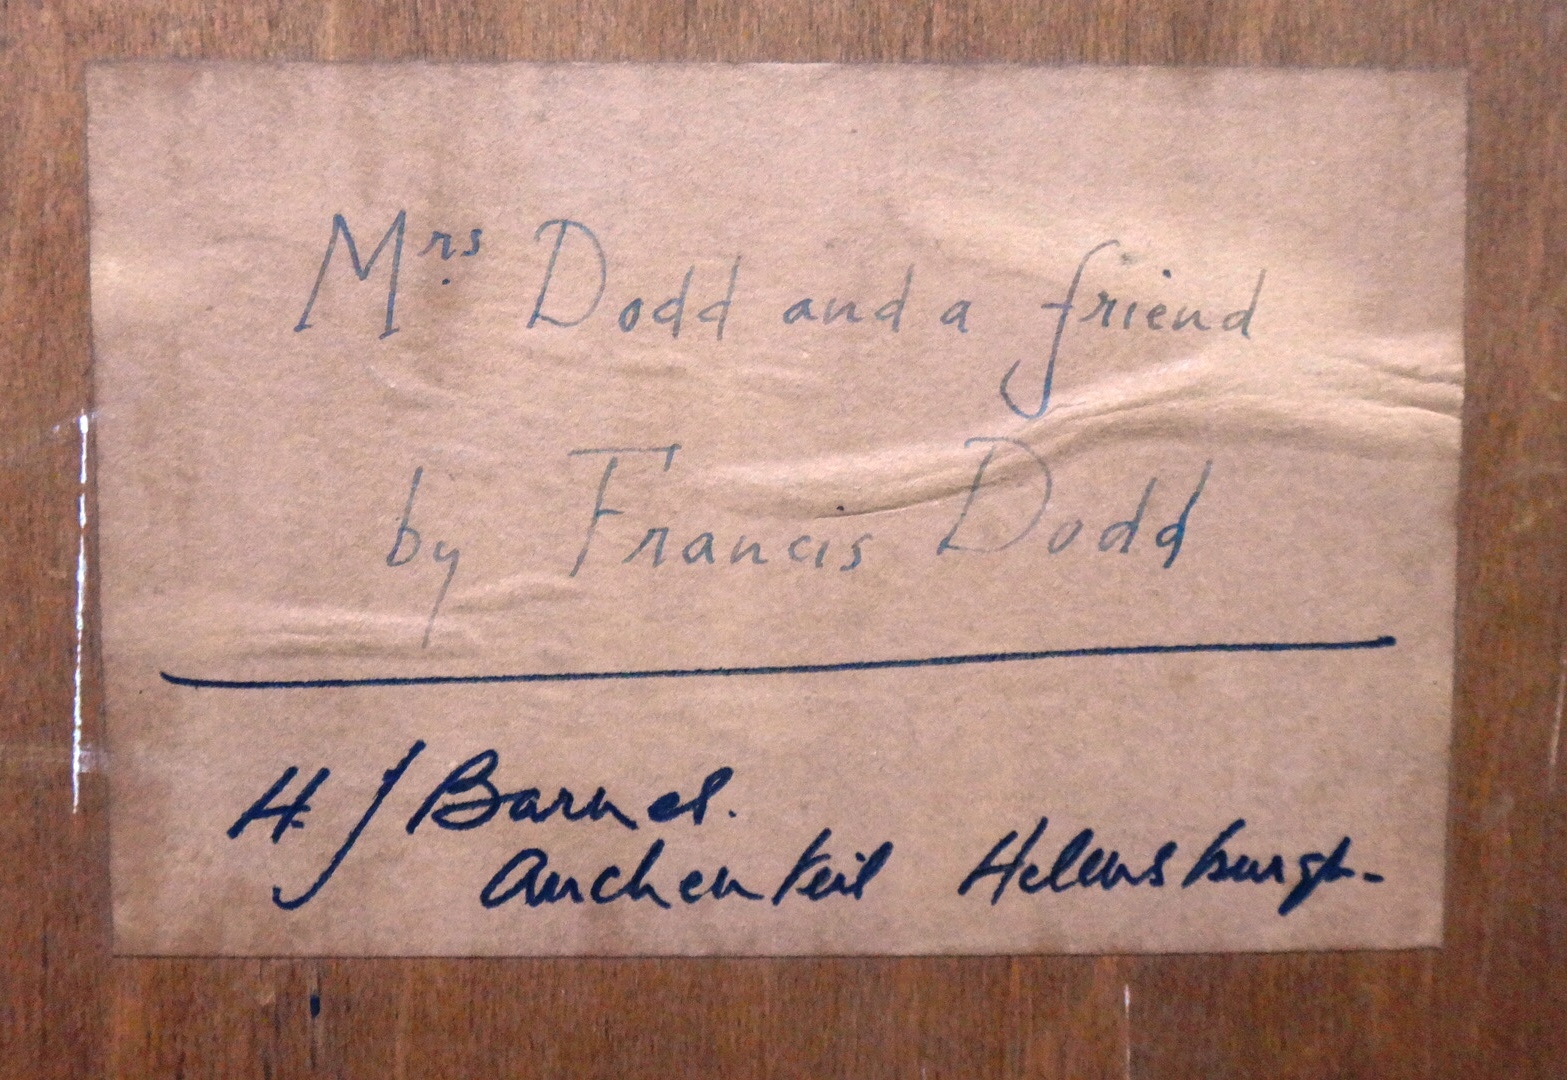 Mrs. Dodd and a friend
by Francis Dodd
H. J Barnes.
Auchenteil Helensburgh-